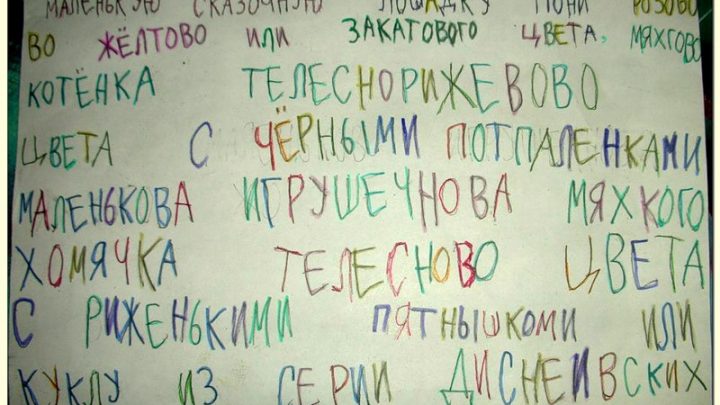 МАЛЕНЬКУЮ СКАЗОЧНУЮ ЛОШАДКУ ПОНИ РОЗОВО
ВО ЖЁЛТОВО ИЛИ ЗАКАТОВОГО ЦВЕТА, МЯХГОВО
КОТЁНКА ТЕЛЕСНОРИЖЕВОВО
ЦВЕТА С ЧЁРНЫМИ ПОТПАЛЕНКАМИ
МАЛЕНЬКОВА ИГРУШЕЧНОВА МЯХКОГО
ХОМЯЧКА ТЕЛЕСНОВО ЦВЕТА
С РИЖЕНЬКИМИ ПЯТНЫШКОМИ ИЛИ
КУКЛУ ИЗ СЕРИИ ДИСНЕИВСКИХ